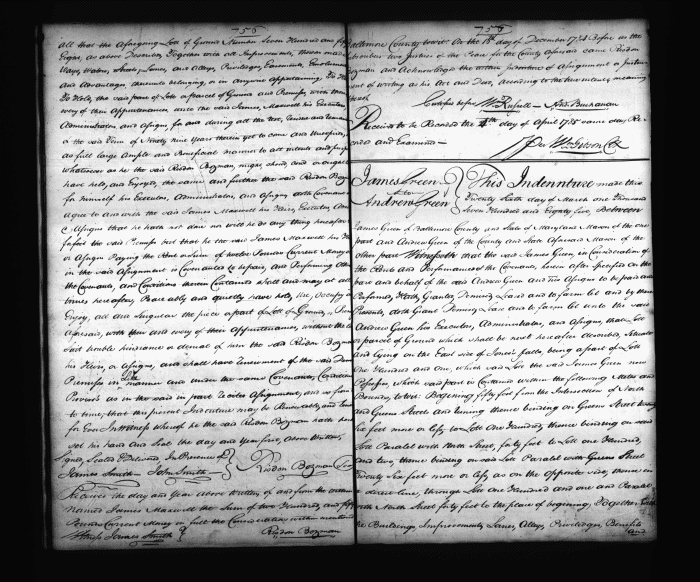 756
all that the aforegoing Lott of Ground Number Seven Hundred and fifty
Eight, as above Described, Together with all Improvements, thereon made
Ways, Waters, Streets, Lanes, and Alleys, Priviledges, Easements, Emoluments
and Advantages, thereunto belonging, or in anywise appertaining To Have
To Hold, the said part of Lott or parcel of Ground and Premises with their
every of their Appurtenances unto the said James Maxwell his Executors,
Administrators, and Assigns, for and during all the rest, residue and remainder
the said Term of Ninety nine Years therein yet to come and unexpired,
as full large Ample and Beneficial manner to all intents and purposes
whatsoever as he the said Risdon Bozman, might, should, and or ought
have held, and Enjoyed, the same and further the said Risdon Bozman
for himself his Executors, Administrators, and Assigns doth Covenant
agree to and with the said James Maxwell his Heirs, Executors, Adm
& Assigns that he hath not done nor will he do any thing hereafter
forfeit the said Premises but that he the said James Maxwell his
or Assigns Paying the Rent or Sum of twelve Pounds Current Money
in the said Assignment is Covenanted to be paid, and Performing other
the Covenants, and Conditions therein Contained shall and may at all
times hereafter, Peaceably and quietly have, hold, use, Occupy
Enjoy, all and Singular the piece or part of Lott of Ground, & Premises
Aforesaid, with their and every of their Appurtenances, without the
hindrance or denial of him the said Risdon Bozman
his Heirs, or Assigns, and shall have Renewment of the said
Premises in like manner and under the same Covenants, Conditions
Provisoes as in the said in part Recited Assignment, and so from
to time, that the present Indenture may be Renewable, and
for Ever In Witness whereof he the said Risdon Bozman hath
set his hand and Seal the day and Year first, above Written,
Signed, Sealed & Delivered, In Presence of
James Smith — John Smith — Risdon Bozman
Received the day and Year above Written, of and from the within
Named James Maxwell the Sum of two Hundred, and
Pounds Current Money in full the Consideration within mentioned
Witness James Smith Risdon Bozman
758
Baltimore County to wit: On the 18th day of December 1784 Before us the
Subscribers two Justices of the Peace for the County aforesaid came Risdon
Bozman and Acknowledges the within Indenture of Assignment or Instru-
ment of writing as his Act and Deed, According to the true intent, & meaning
thereof
Certified before Wm Russell — And. Buchanan
Received to be Recorded the 4th day of April 1785 same day Re-
corded and Examined —
Per Wm Gibson Clk
James Green
to
Andrew Green
This Indennture made this
Twenty Sixth day of March One Thousand
Seven Hundred and Eighty five Between
James Green of Baltimore County and State of Maryland Mason of the one
part and Andrew Green of the County and State Aforesaid Mason of the
other part Witnesseth that the said James Green, in Consideration of
the Rents and Performances of the Covenants, herein after Specified on the
part and behalf of the said Andrew Green and his Assigns to be paid and
Performed, Hath Granted, Demised Leased and to farm let and by these
Presents, doth Grant Demise, Lease and to farm let unto the said
Andrew Green his Executors, Administrators, and Assigns, that Lott
or parcel of Ground which shall be next hereafter described, Situate
and lying on the East side of Jones's falls, being a part of Lott
One Hundred and One, which said Lott the said James Green now
Possesses, which said part is Contained within the following Metes and
Bounds, to wit Begining fifty feet from the Intersection of North
and Greens Streets and running thence bending on Greens Street twenty
Six feet more or less to Lott One Hundred, thence bending on said
Lott Paralel with North Street, forty feet to Lott one Hundred,
and two, thence bending on said Lott Paralel with Greens Street
Twenty Six feet more or less, as on the opposite side, thence in
a direct line, through Lott One Hundred and one and Paralel
with North Street forty feet to the place of begining, Together with
the Buildings, Improvements, Lanes, Alleys, Priviledges, Benefits
and